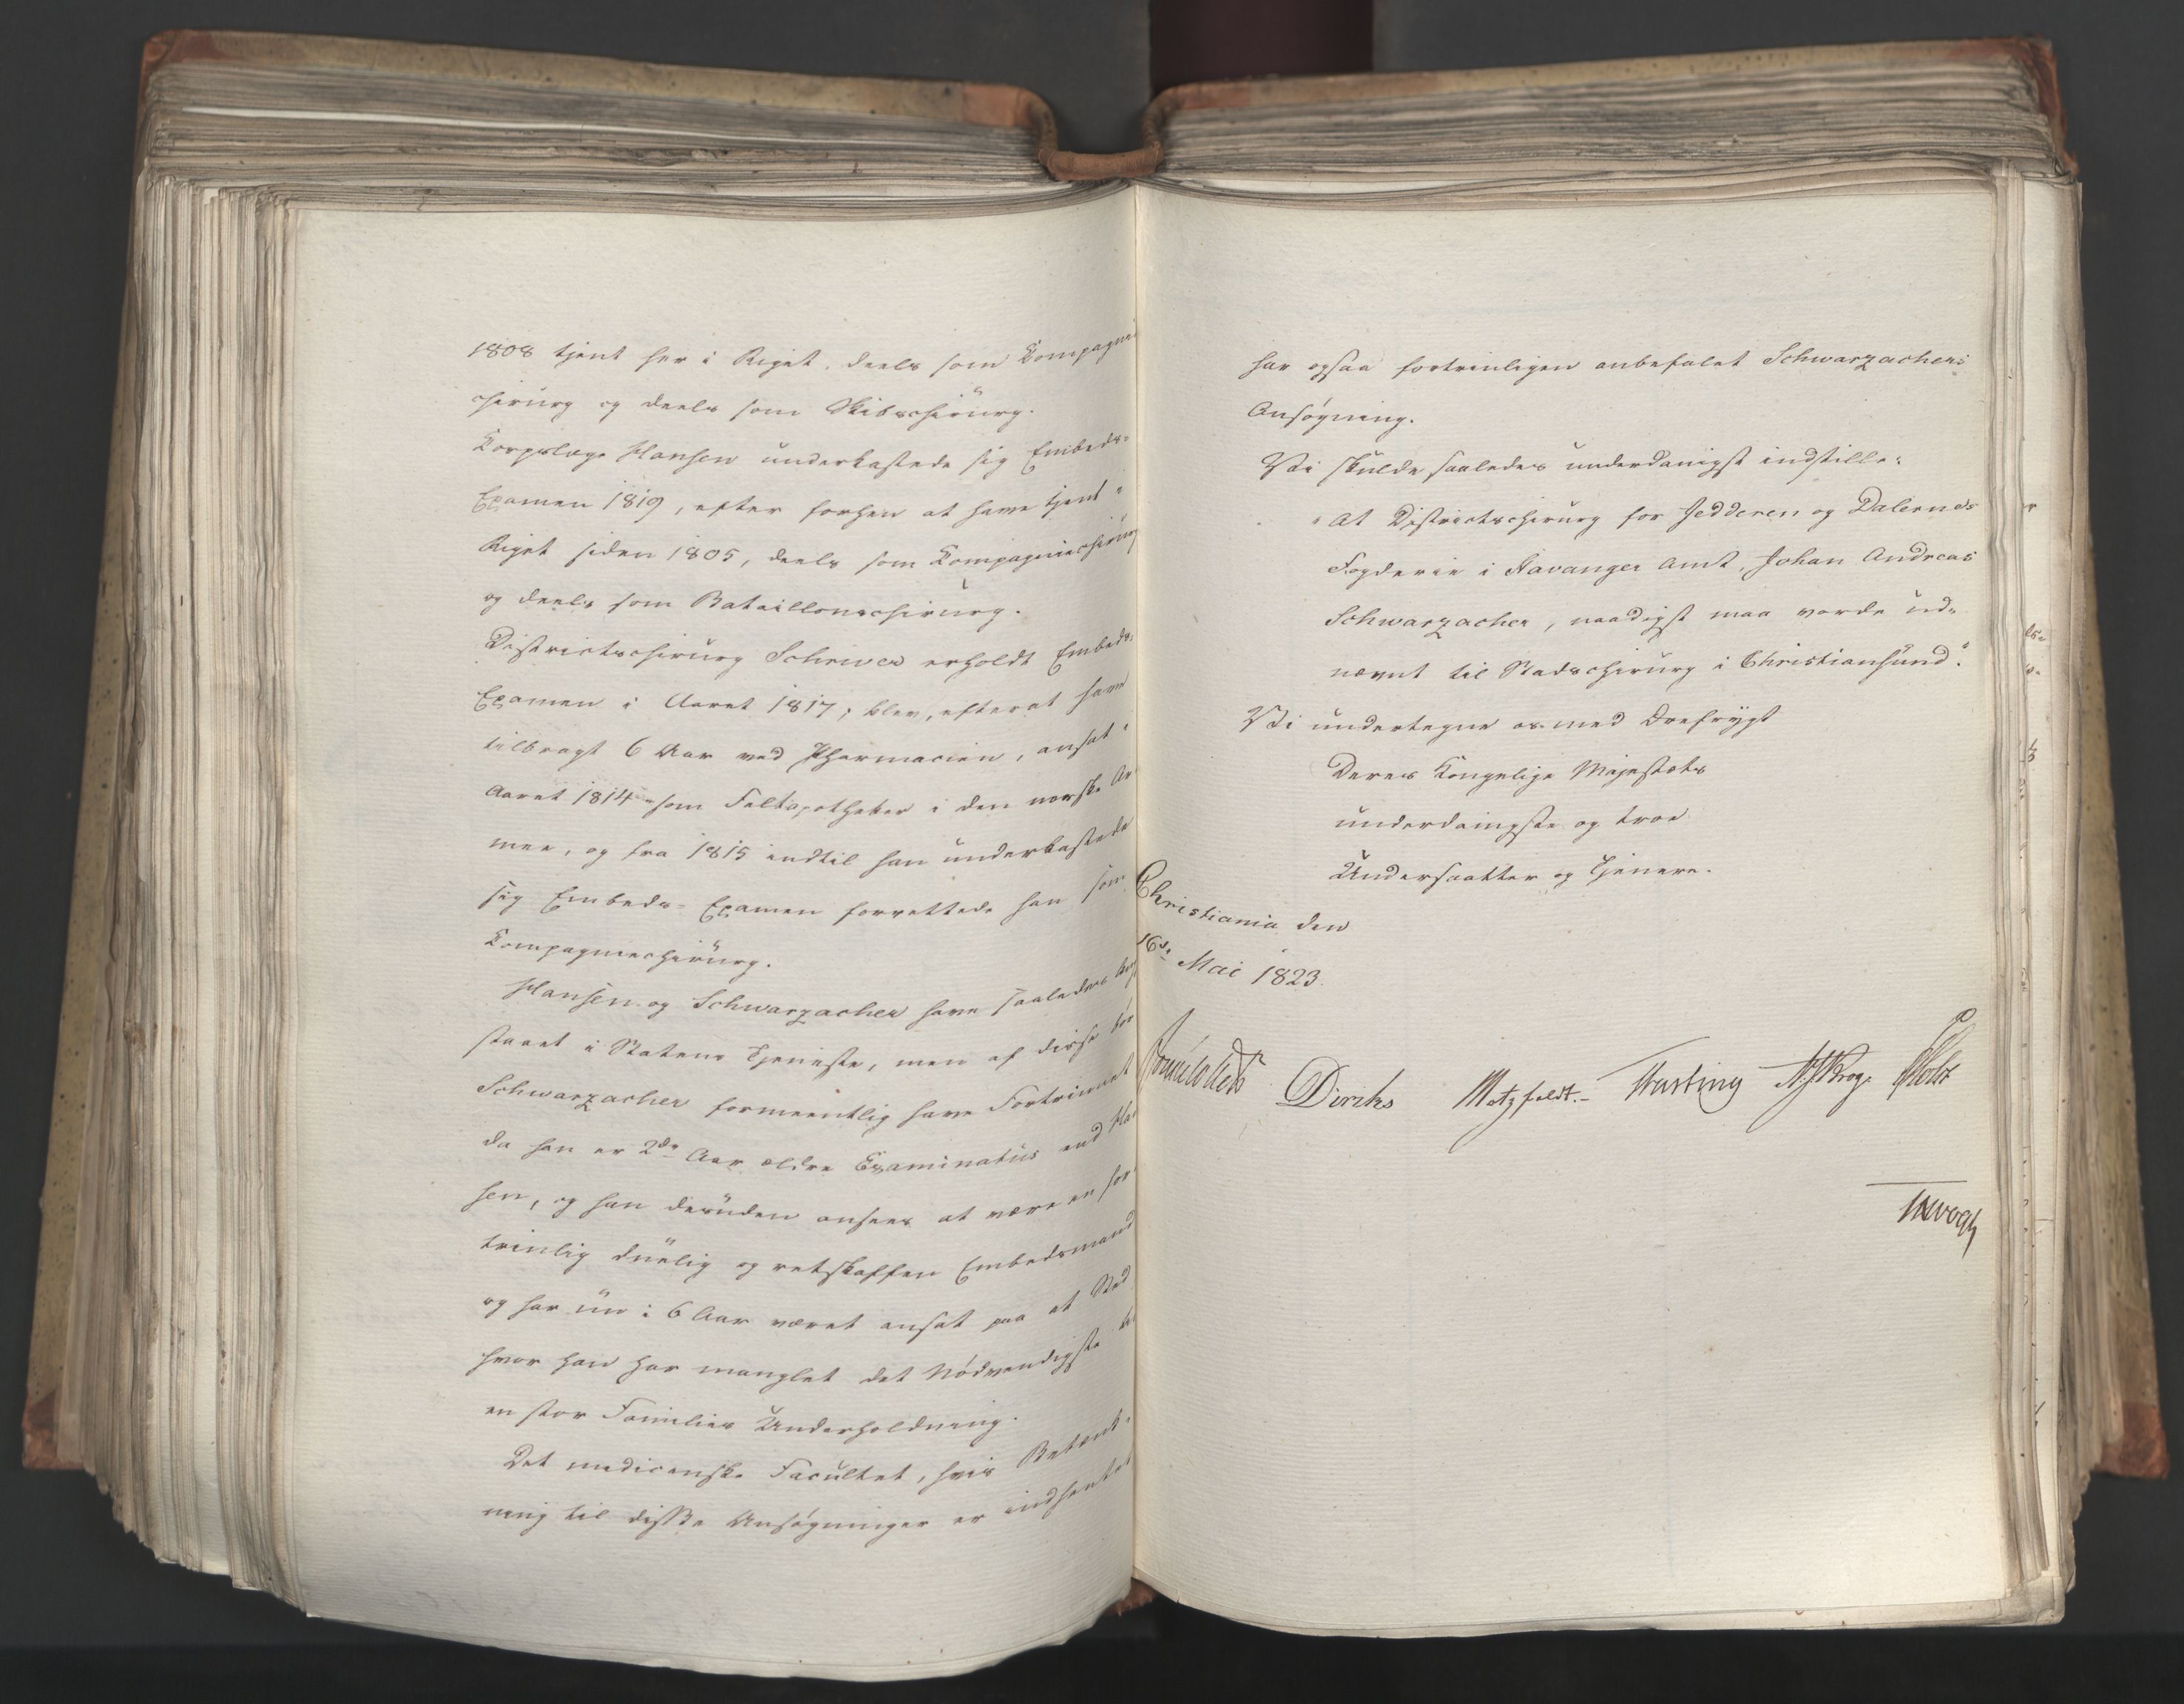 1808 tjent her i Riget, deels som Compagnie
chirurg og deels som Skibschirurg.
Corpslæge Hansen underkastede sig Embeds=
Examen 1819, efter forhen at have tjent i
Riget siden 1805, deels som Compagniechirurg
og deels som Bataillonschirurg.
Districtschirurg Schriwer erholdt Embeds=
Examen i Aaret 1817, blev, efter at have
tilbragt 6 Aar ved Pharmacien, ansat i
Aaret 1814 som Feltapotheker i den norske Ar
mee, og fra 1815 indtil han underkastede
sig Embeds=Examen forrettede han som
Compagniechirurg.
Hansen og Schwarzacher have saaledes længst
staaet i Statens Tjeneste, men af disse bør
Schwarzacher formeentlig have Fortrinnet
da han er 2de Aar ældre Examinatus end Han
sen, og han desuden ansees at være en for
trinlig duelig og retskaffen Embedsmand
og har nu i 6 Aar været ansat paa et Sted
hvor han har manglet det Nødvendigste til
en stor Families Underholdning.
Det medicinske Facultet, hvis Betænk=
ning til disse Ansøgninger er indhentet
har ogsaa fortrinligen anbefalet Schwarzachers
Ansøgning.
Vi skulde saaledes underdanigst indstille:
"At Districtschirurg for Jedderen og Dalernes
Fogderie i Stavanger Amt, Johan Andreas
Schwarzacher, naadigst maa vorde ud=
nævnt til Stadschirurg i Christiansund."
Vi undertegne os med Ærefrygt
Deres Kongelige Majestæts
underdanigste og troe
Undersaatter og Tjenere.
Christiania den
16de Mai 1823.
Diriks Motzfeldt. Fasting Krog. Holst